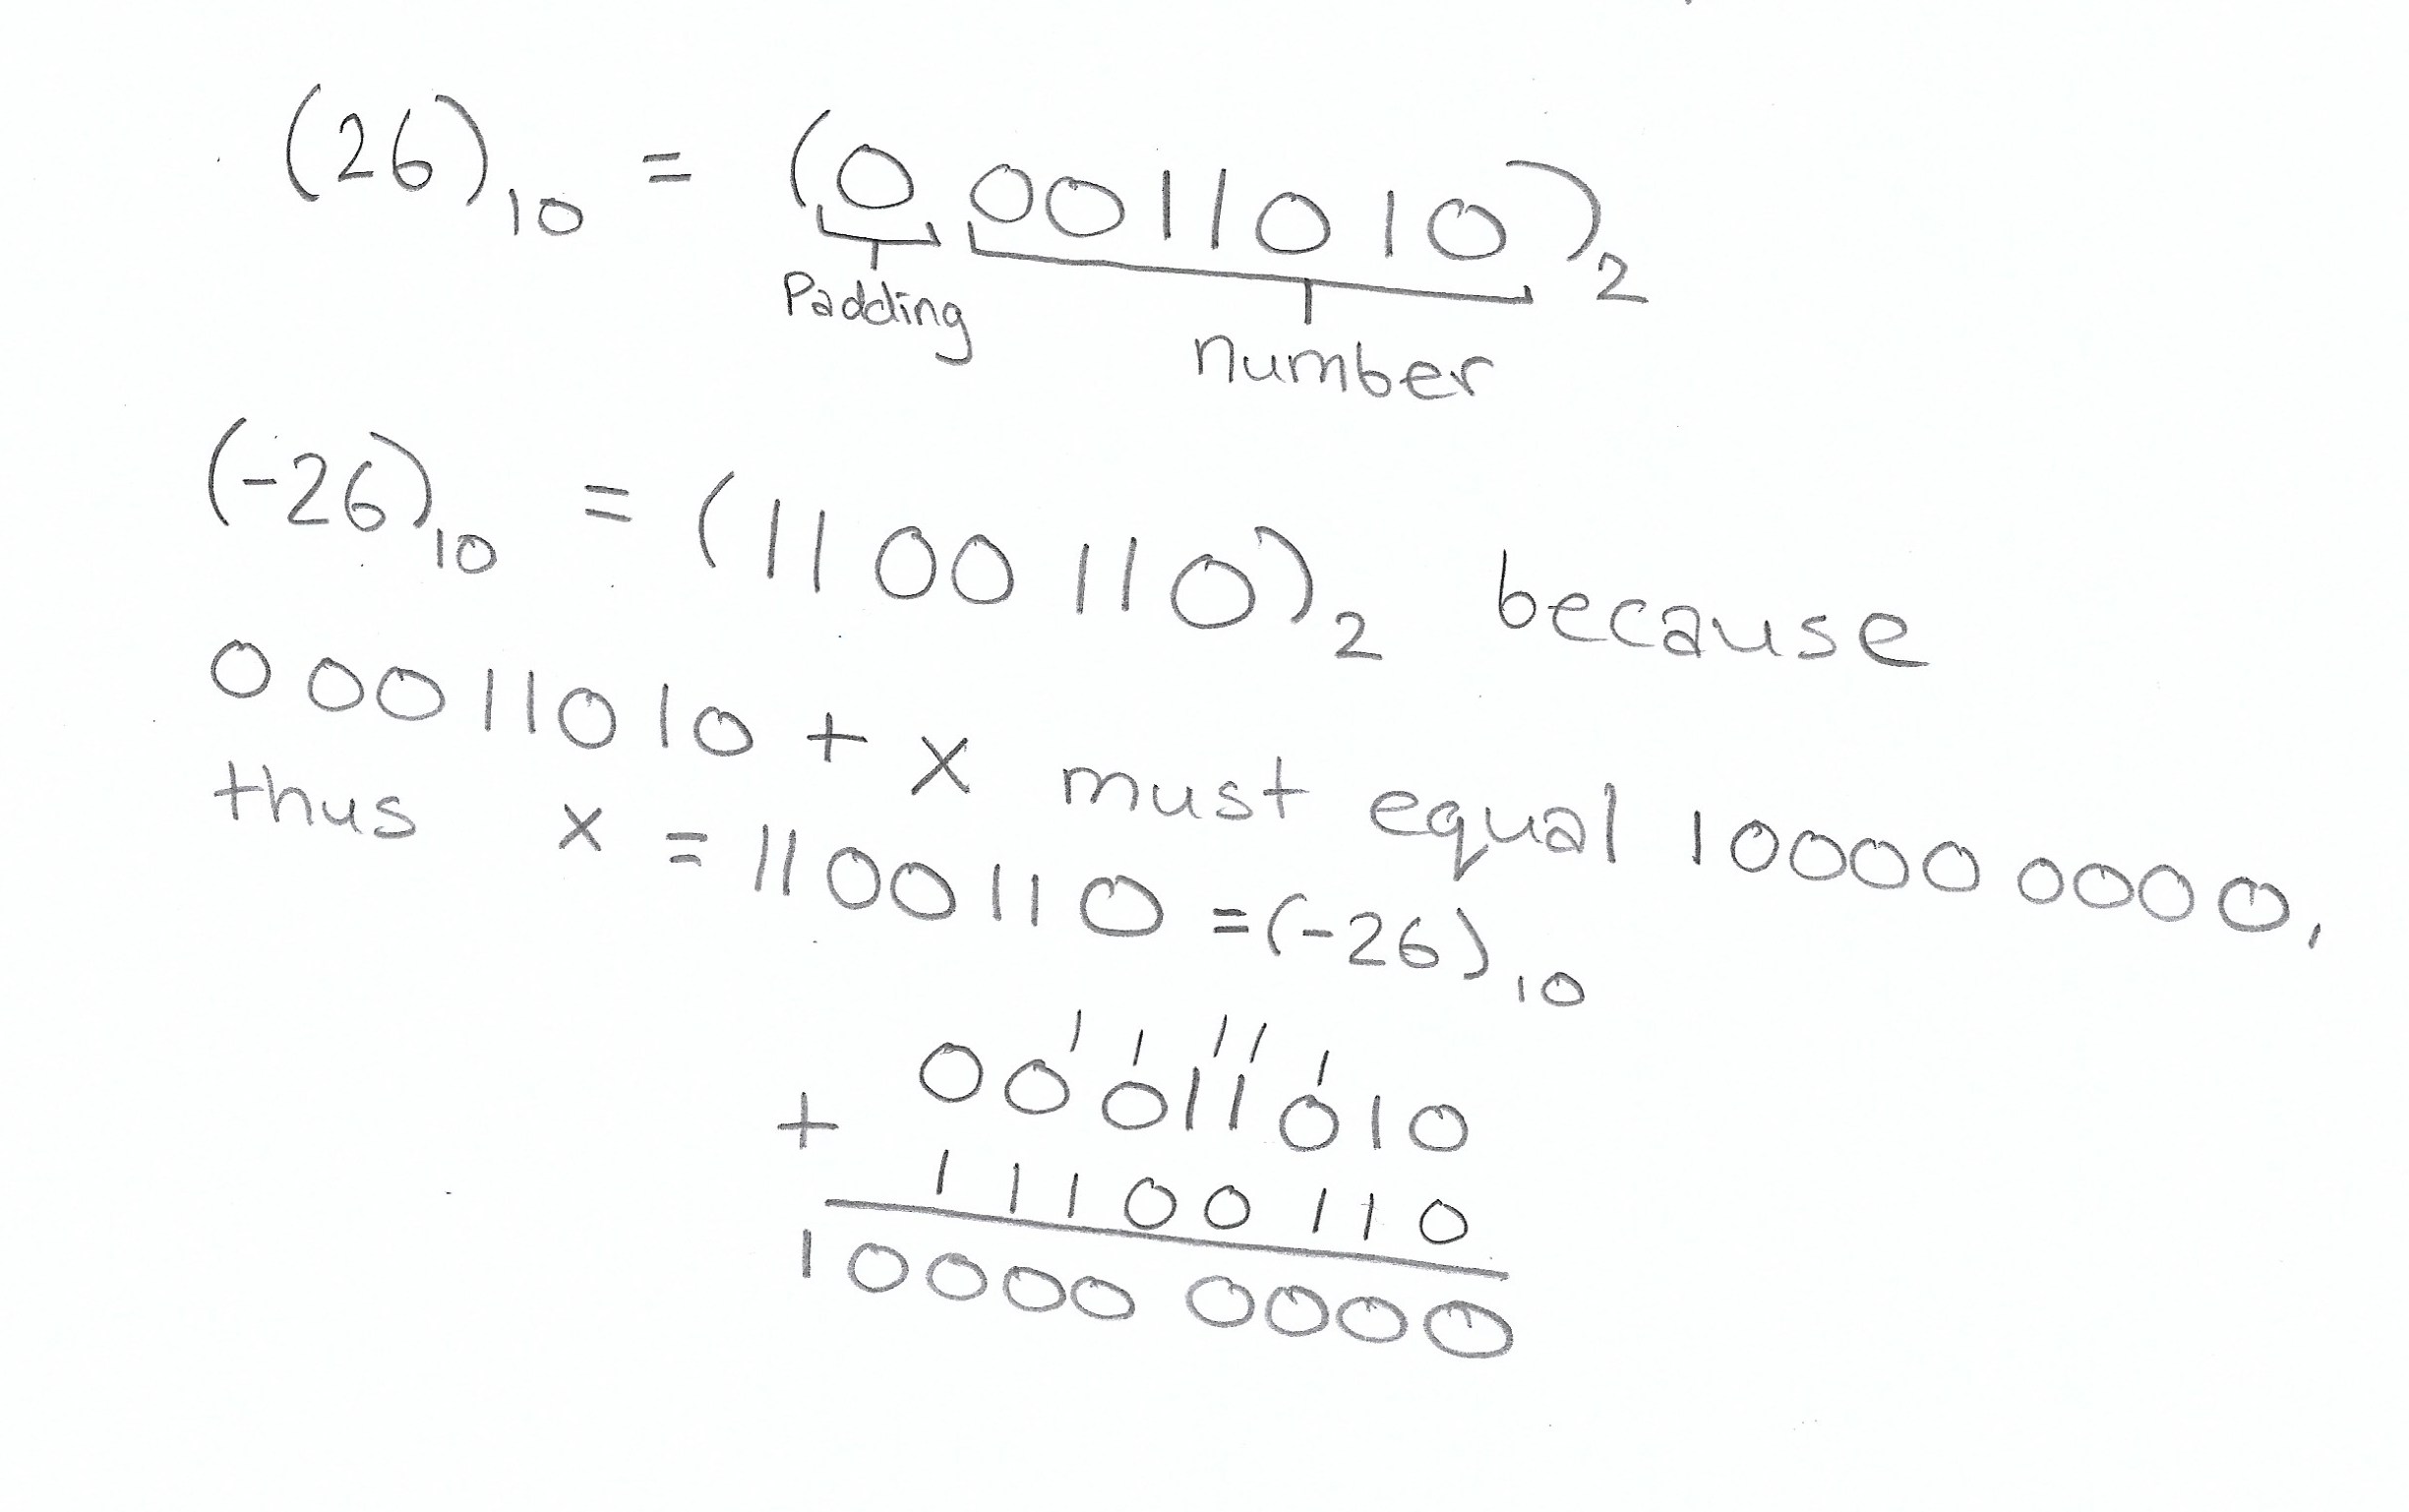 (26)10 = (0 0011010)2
Padding
number
(-26)10 = (1100110)2 because
00011010 + x must equal 10000 0000,
thus x = 1100110 = (-26)10
1 1 11 1
00011010
+ 11100110
10000 0000